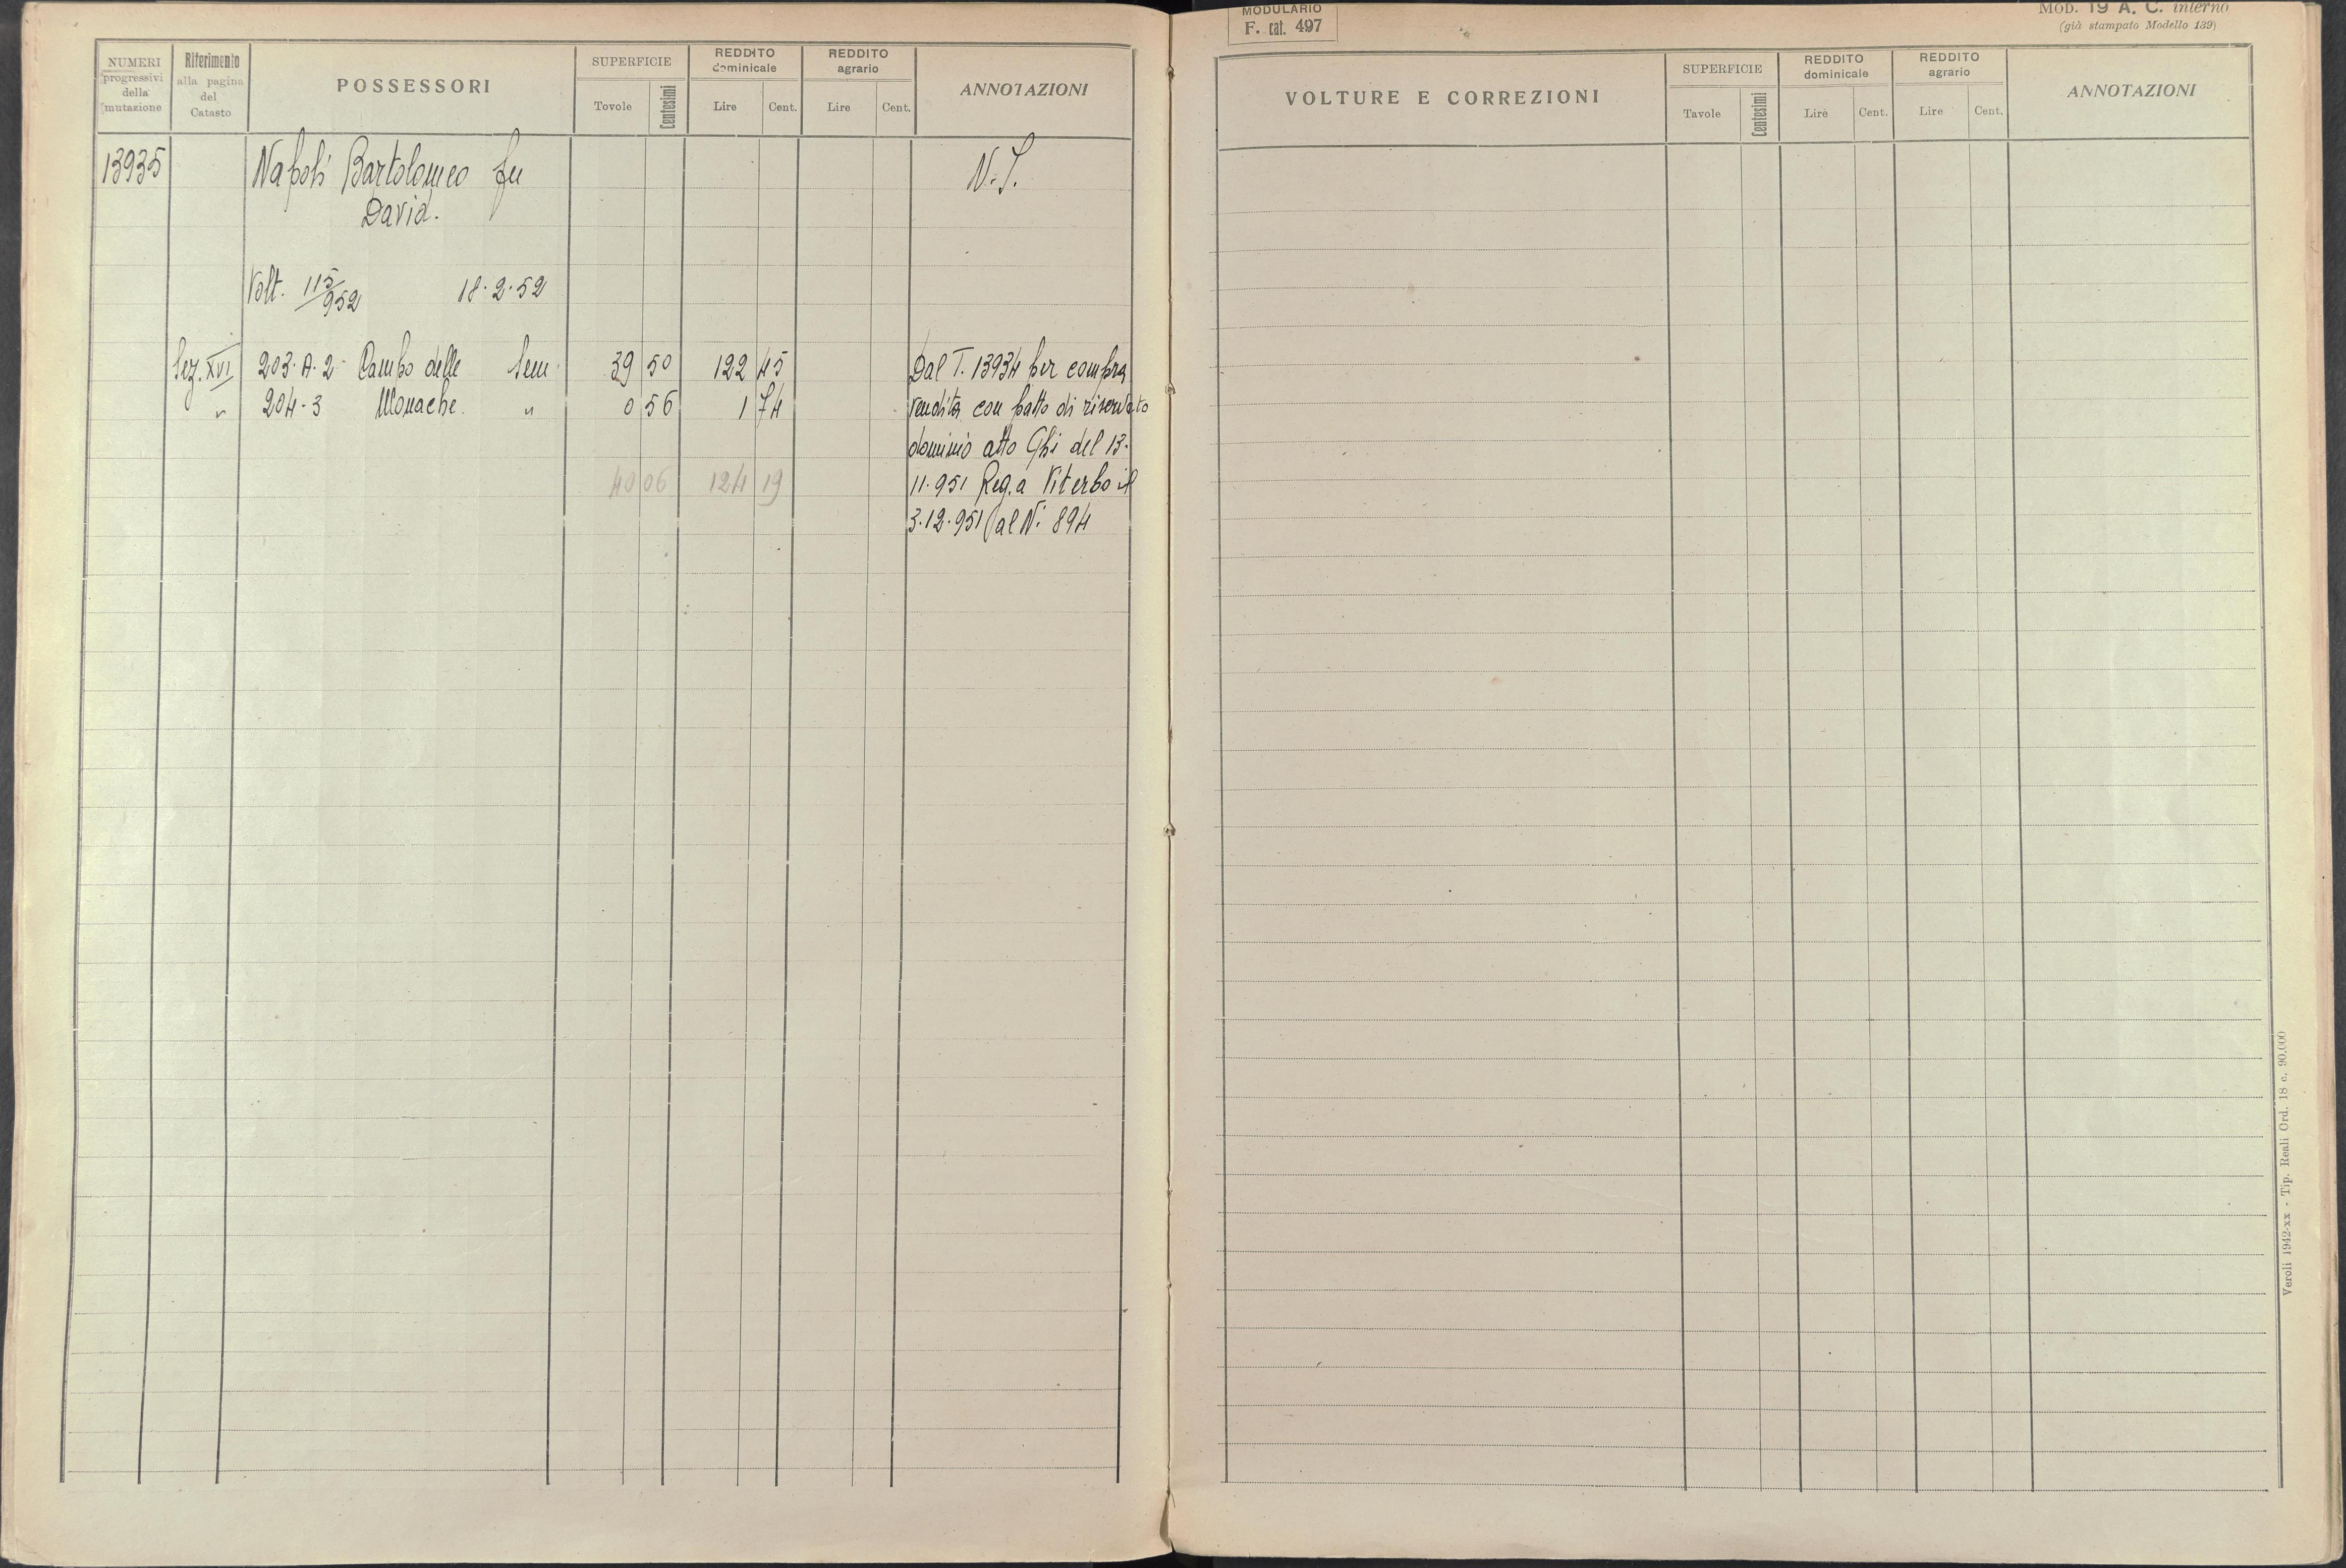 NUMERI progressivi della mutazione
Riferimento alla pagina del Catasto
POSSESSORI
SUPERFICIE
Tovole
Centesimi
REDDITO dominicale
Lire
Cent.
REDDITO agrario
Lire
Cent.
ANNOTAZIONI
13935
Napoli Bartolomeo fu
N.I.
David.
Volt. 115/952 18.2.52
Sez. XVI 203.A.2 Campo delle Sem. 39 50 122 45 Dal T. 13934 per compra
" 204-3 Monache. " 0 56 1 74 vendita con patto di riservato
dominio atto Ghi del 13.
40 06 124 19 11.951 Reg. a Viterbo il
3.12.951 al N. 894
MODULARIO
F. cat. 497
MOD. 19 A. C. interno
(già stampato Modello 139)
VOLTURE E CORREZIONI
SUPERFICIE
Tavole
Centesimi
REDDITO dominicale
Lire
Cent.
REDDITO agrario
Lire
Cent.
ANNOTAZIONI
Veroli 1942-xx - Tip. Reali Ord. 18 c. 90.000